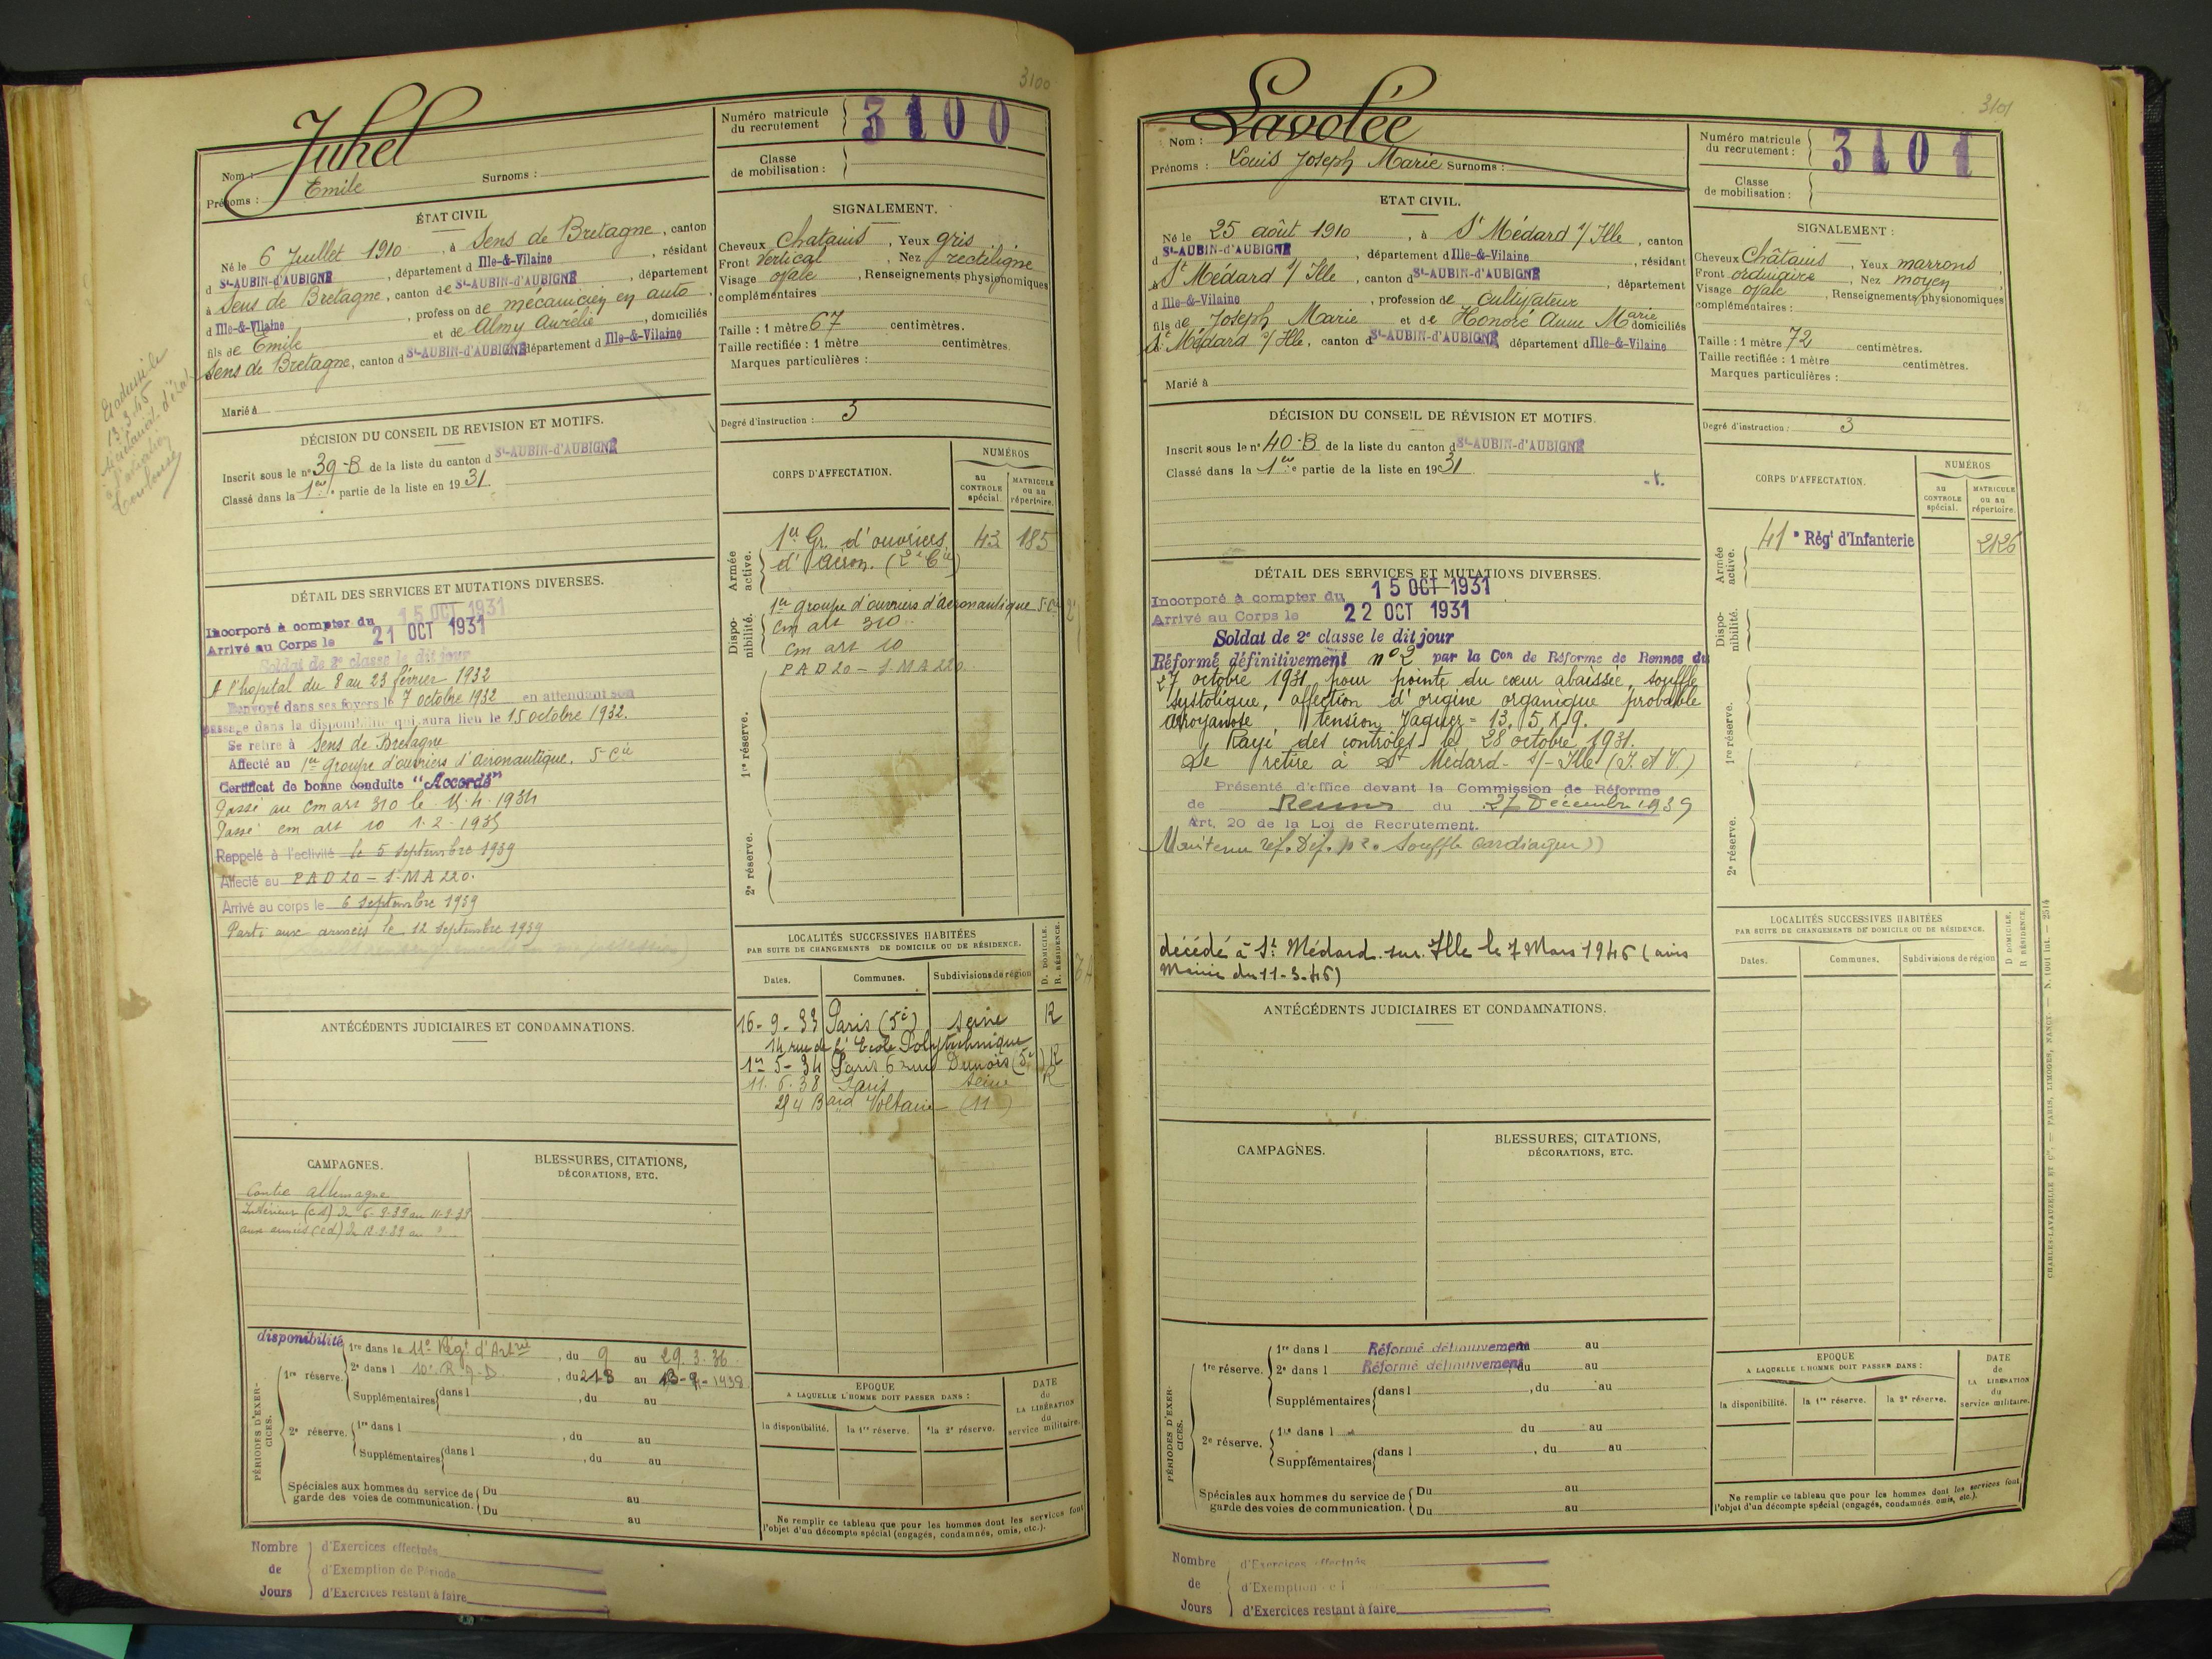 3100
Juhel
Nom :
Prénoms : Emile Surnoms :
Numéro matricule du recrutement 3100
Classe de mobilisation :
ÉTAT CIVIL
Né le 6 Juillet 1910, à Sens de Bretagne, canton
d St-AUBIN-d'AUBIGNÉ, département d Ille-&-Vilaine, résidant
à Sens de Bretagne, canton de St-AUBIN-d'AUBIGNÉ, département
d Ille-&-Vilaine, profession de mécanicien en auto
fils de Emile et de Almy Aurélie, domiciliés
Sens de Bretagne, canton d St-AUBIN-d'AUBIGNÉ département d Ille-&-Vilaine
Marié à
SIGNALEMENT.
Cheveux Chatains, Yeux gris
Front Vertical, Nez rectiligne
Visage ovale, Renseignements physionomiques
complémentaires
Taille : 1 mètre 67 centimètres.
Taille rectifiée : 1 mètre centimètres.
Marques particulières :
Degré d'instruction : 3
13.3.45
Toulouse
DÉCISION DU CONSEIL DE REVISION ET MOTIFS.
Inscrit sous le n° 39-B de la liste du canton d St-AUBIN-d'AUBIGNÉ
Classé dans la 1ère partie de la liste en 1931
CORPS D'AFFECTATION.
NUMÉROS
au CONTROLE spécial.
MATRICULE ou au répertoire.
Armée active.
1er Gr. d'ouvriers 43 185
d'Aéron. (2e Cie)
Disponibilité.
1er groupe d'ouvriers d'aéronautique 5e Cie
cm art 310
cm art 10
PAD 20 - S.MA 220
1re réserve.
2e réserve.
DÉTAIL DES SERVICES ET MUTATIONS DIVERSES.
Incorporé à compter du 15 OCT 1931
Arrivé au Corps le 21 OCT 1931
Soldat de 2e classe le dit jour
A l'hopital du 8 au 23 février 1932
Renvoyé dans ses foyers le 7 octobre 1932 en attendant son
passage dans la disponibilité qui aura lieu le 15 octobre 1932.
Se retire à Sens de Bretagne
Affecté au 1er Groupe d'ouvriers d'aéronautique. 5e Cie
Certificat de bonne conduite "Accordé"
Passé au cm art 310 le 15.4.1934
Passé cm art 10 1.2.1935
Rappelé à l'activité le 5 septembre 1939
Affecté au PAD 20 - S.MA 220.
Arrivé au corps le 6 septembre 1939
Parti aux armées le 12 septembre 1939
LOCALITÉS SUCCESSIVES HABITÉES
PAR SUITE DE CHANGEMENTS DE DOMICILE OU DE RÉSIDENCE.
Dates. Communes. Subdivisions de région D. DOMICILE. R. RÉSIDENCE.
16-9-33 Paris (5e) Seine R
14 rue de l'Ecole Polytechnique
1er 5-34 Paris 6 rue Dunois (5e) R
11.6.38 Paris Seine R
254 Bard Voltaire (11)
ANTÉCÉDENTS JUDICIAIRES ET CONDAMNATIONS.
CAMPAGNES.
Contre Allemagne
Intérieur (CS) du 6-9-39 au 11-9-39
aux armées (cd) du 12-9-39 au
BLESSURES, CITATIONS,
DÉCORATIONS, ETC.
PÉRIODES D'EXERCICES.
disponibilité
1re réserve. 1re dans le 11e Régt d'Artrie, du 9 au 29.3.36
2e dans l 10e R.A.D., du 21-8 au 13-9-1938
Supplémentaires dans l, du au
2e réserve. 1re dans l, du au
Supplémentaires dans l, du au
Spéciales aux hommes du service de garde des voies de communication. Du au
Du au
EPOQUE
A LAQUELLE L'HOMME DOIT PASSER DANS :
la disponibilité. la 1re réserve. la 2e réserve.
DATE de LA LIBÉRATION du service militaire.
Ne remplir ce tableau que pour les hommes dont les services font
l'objet d'un décompte spécial (engagés, condamnés, omis, etc.).
Nombre de Jours
d'Exercices effectués
d'Exemption de Période
d'Exercices restant à faire
3101
Lavolée
Nom :
Prénoms : Louis Joseph Marie Surnoms :
Numéro matricule du recrutement : 3101
Classe de mobilisation :
ETAT CIVIL.
Né le 25 août 1910, à St Médard s/ Ille, canton
d St-AUBIN-d'AUBIGNÉ, département d Ille-&-Vilaine, résidant
à St Médard s/ Ille, canton d St-AUBIN-d'AUBIGNÉ, département
d Ille-&-Vilaine, profession de Cultivateur
fils de Joseph Marie et de Honoré Anne Marie domiciliés
St Médard s/ Ille, canton d St-AUBIN-d'AUBIGNÉ département d Ille-&-Vilaine
Marié à
SIGNALEMENT :
Cheveux Châtains, Yeux marrons
Front ordinaire, Nez moyen
Visage ovale, Renseignements physionomiques
complémentaires :
Taille : 1 mètre 72 centimètres.
Taille rectifiée : 1 mètre centimètres.
Marques particulières :
Degré d'instruction : 3
DÉCISION DU CONSEIL DE RÉVISION ET MOTIFS.
Inscrit sous le n° 40-B de la liste du canton d St-AUBIN-d'AUBIGNÉ
Classé dans la 1ère partie de la liste en 1931
CORPS D'AFFECTATION.
NUMÉROS
AU CONTROLE spécial.
MATRICULE ou au répertoire.
Armée active.
41e Régt d'Infanterie 2126
Disponibilité.
1re réserve.
2e réserve.
DÉTAIL DES SERVICES ET MUTATIONS DIVERSES.
Incorporé à compter du 15 OCT 1931
Arrivé au Corps le 22 OCT 1931
Soldat de 2e classe le dit jour
Réformé définitivement n°2 par la Con de Réforme de Rennes du
27 octobre 1931 pour pointe du cœur abaissée, souffle
systolique, affection d'origine organique probable
tension Vaquez = 13. 5 x 9.
Rayé des contrôles le 28 octobre 1931.
Se retire à St Médard-s/-Ille (I. et V.)
Présenté d'office devant la Commission de Réforme
de Rennes du 27 Décembre 1939
Art. 20 de la Loi de Recrutement.
Maintenu réf. Déf. n°2 "Souffle cardiaque"
décédé à St Médard-sur-Ille le 7 Mars 1946 (avis
Mairie du 11-3-46)
LOCALITÉS SUCCESSIVES HABITÉES
PAR SUITE DE CHANGEMENTS DE DOMICILE OU DE RÉSIDENCE.
Dates. Communes. Subdivisions de région D. DOMICILE. R. RÉSIDENCE.
ANTÉCÉDENTS JUDICIAIRES ET CONDAMNATIONS.
CAMPAGNES.
BLESSURES, CITATIONS,
DÉCORATIONS, ETC.
PÉRIODES D'EXERCICES.
1re réserve. 1re dans l Réformé définitivement au
2e dans l Réformé définitivement, du au
Supplémentaires dans l, du au
2e réserve. 1re dans l du au
Supplémentaires dans l, du au
Spéciales aux hommes du service de garde des voies de communication. Du au
Du au
EPOQUE
A LAQUELLE L'HOMME DOIT PASSER DANS :
la disponibilité. la 1re réserve. la 2e réserve.
DATE de LA LIBÉRATION du service militaire.
Ne remplir ce tableau que pour les hommes dont les services font
l'objet d'un décompte spécial (engagés, condamnés, omis, etc.).
CHARLES-LAVAUZELLE ET Cie — PARIS, LIMOGES, NANCY — N. 1001 Int. — 2514
Nombre de Jours
d'Exercices effectués
d'Exemption
d'Exercices restant à faire